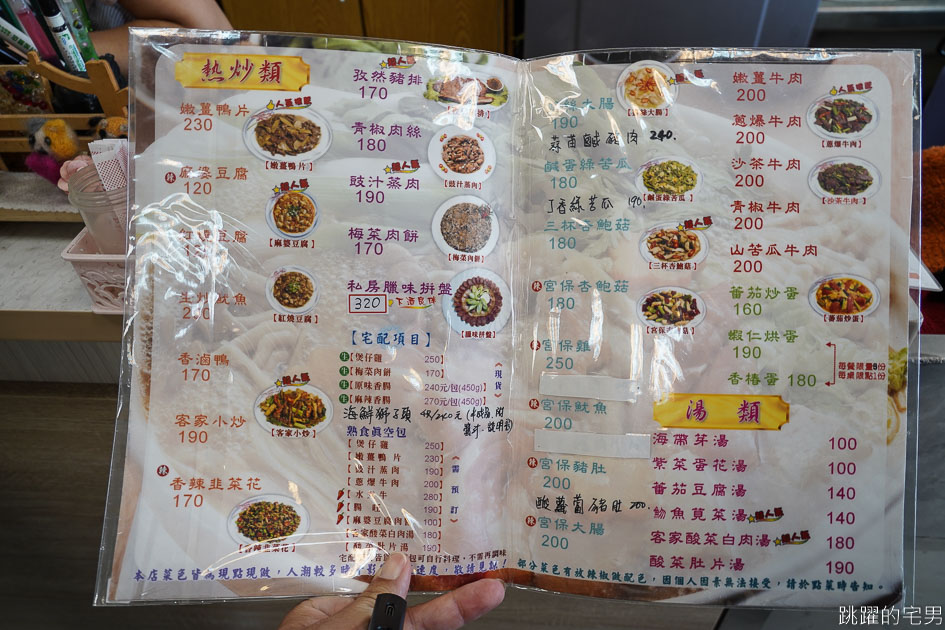 熱炒類
嫩薑鴨片
230
【嫩薑鴨片】
辣 麻婆豆腐
120
懶人區
【麻婆豆腐】
紅燒豆腐
【紅燒豆腐】
香滷鴨
170
懶人區
客家小炒
190
【客家小炒】
辣 香辣韭菜花
170
【香辣韭菜花】
孜然豬排
170
青椒肉絲
180
懶人區
豉汁蒸肉
190
【豉汁蒸肉】
梅菜肉餅
170
【梅菜肉餅】
私房臘味拼盤
320
【臘味拼盤】
【宅配項目】
【煲仔雞 250】
【梅菜肉餅 170】
【原味香腸 240元/包(450g)】
【麻辣香腸 270元/包(450g)】
《現貨》
海鮮獅子頭
熟食真空包
【煲仔雞 250】
【嫩薑鴨片 230】
【豉汁蒸肉 190】
【蔥爆牛肉 200】
【水煮牛 280】
【腸旺 180】
【麻婆豆腐肉醬 100】
【客家酸菜白肉湯 180】
【酸菜肚片湯 190】
《需預訂》
本店菜色皆為現點現做，人潮較多時
速度，敬請見諒！
大腸
200
蒜苗鹹豬肉 240.
鹹蛋綠苦瓜
180
【鹹蛋綠苦瓜】
丁香綠苦瓜 190
三杯杏鮑菇
180
【三杯杏鮑菇】
辣 宮保杏鮑菇
180
【宮保杏鮑菇】
辣 宮保雞
250
辣 宮保魷魚
200
辣 宮保豬肚
200
酸薑豬肚 200.
辣 宮保大腸
200
嫩薑牛肉
200
蔥爆牛肉
200
【蔥爆牛肉】
沙茶牛肉
200
【沙茶牛肉】
青椒牛肉
200
山苦瓜牛肉
200
番茄炒蛋
160
【番茄炒蛋】
蝦仁烘蛋
190
香椿蛋 180
每餐限量8份
每桌限點1份
湯類
海帶芽湯 100
紫菜蛋花湯 100
番茄豆腐湯 140
魩魚莧菜湯 140
客家酸菜白肉湯 180
酸菜肚片湯 190
部分菜色有放辣椒做配色，因個人因素無法接受，請於點菜時告知。
跳躍的宅男